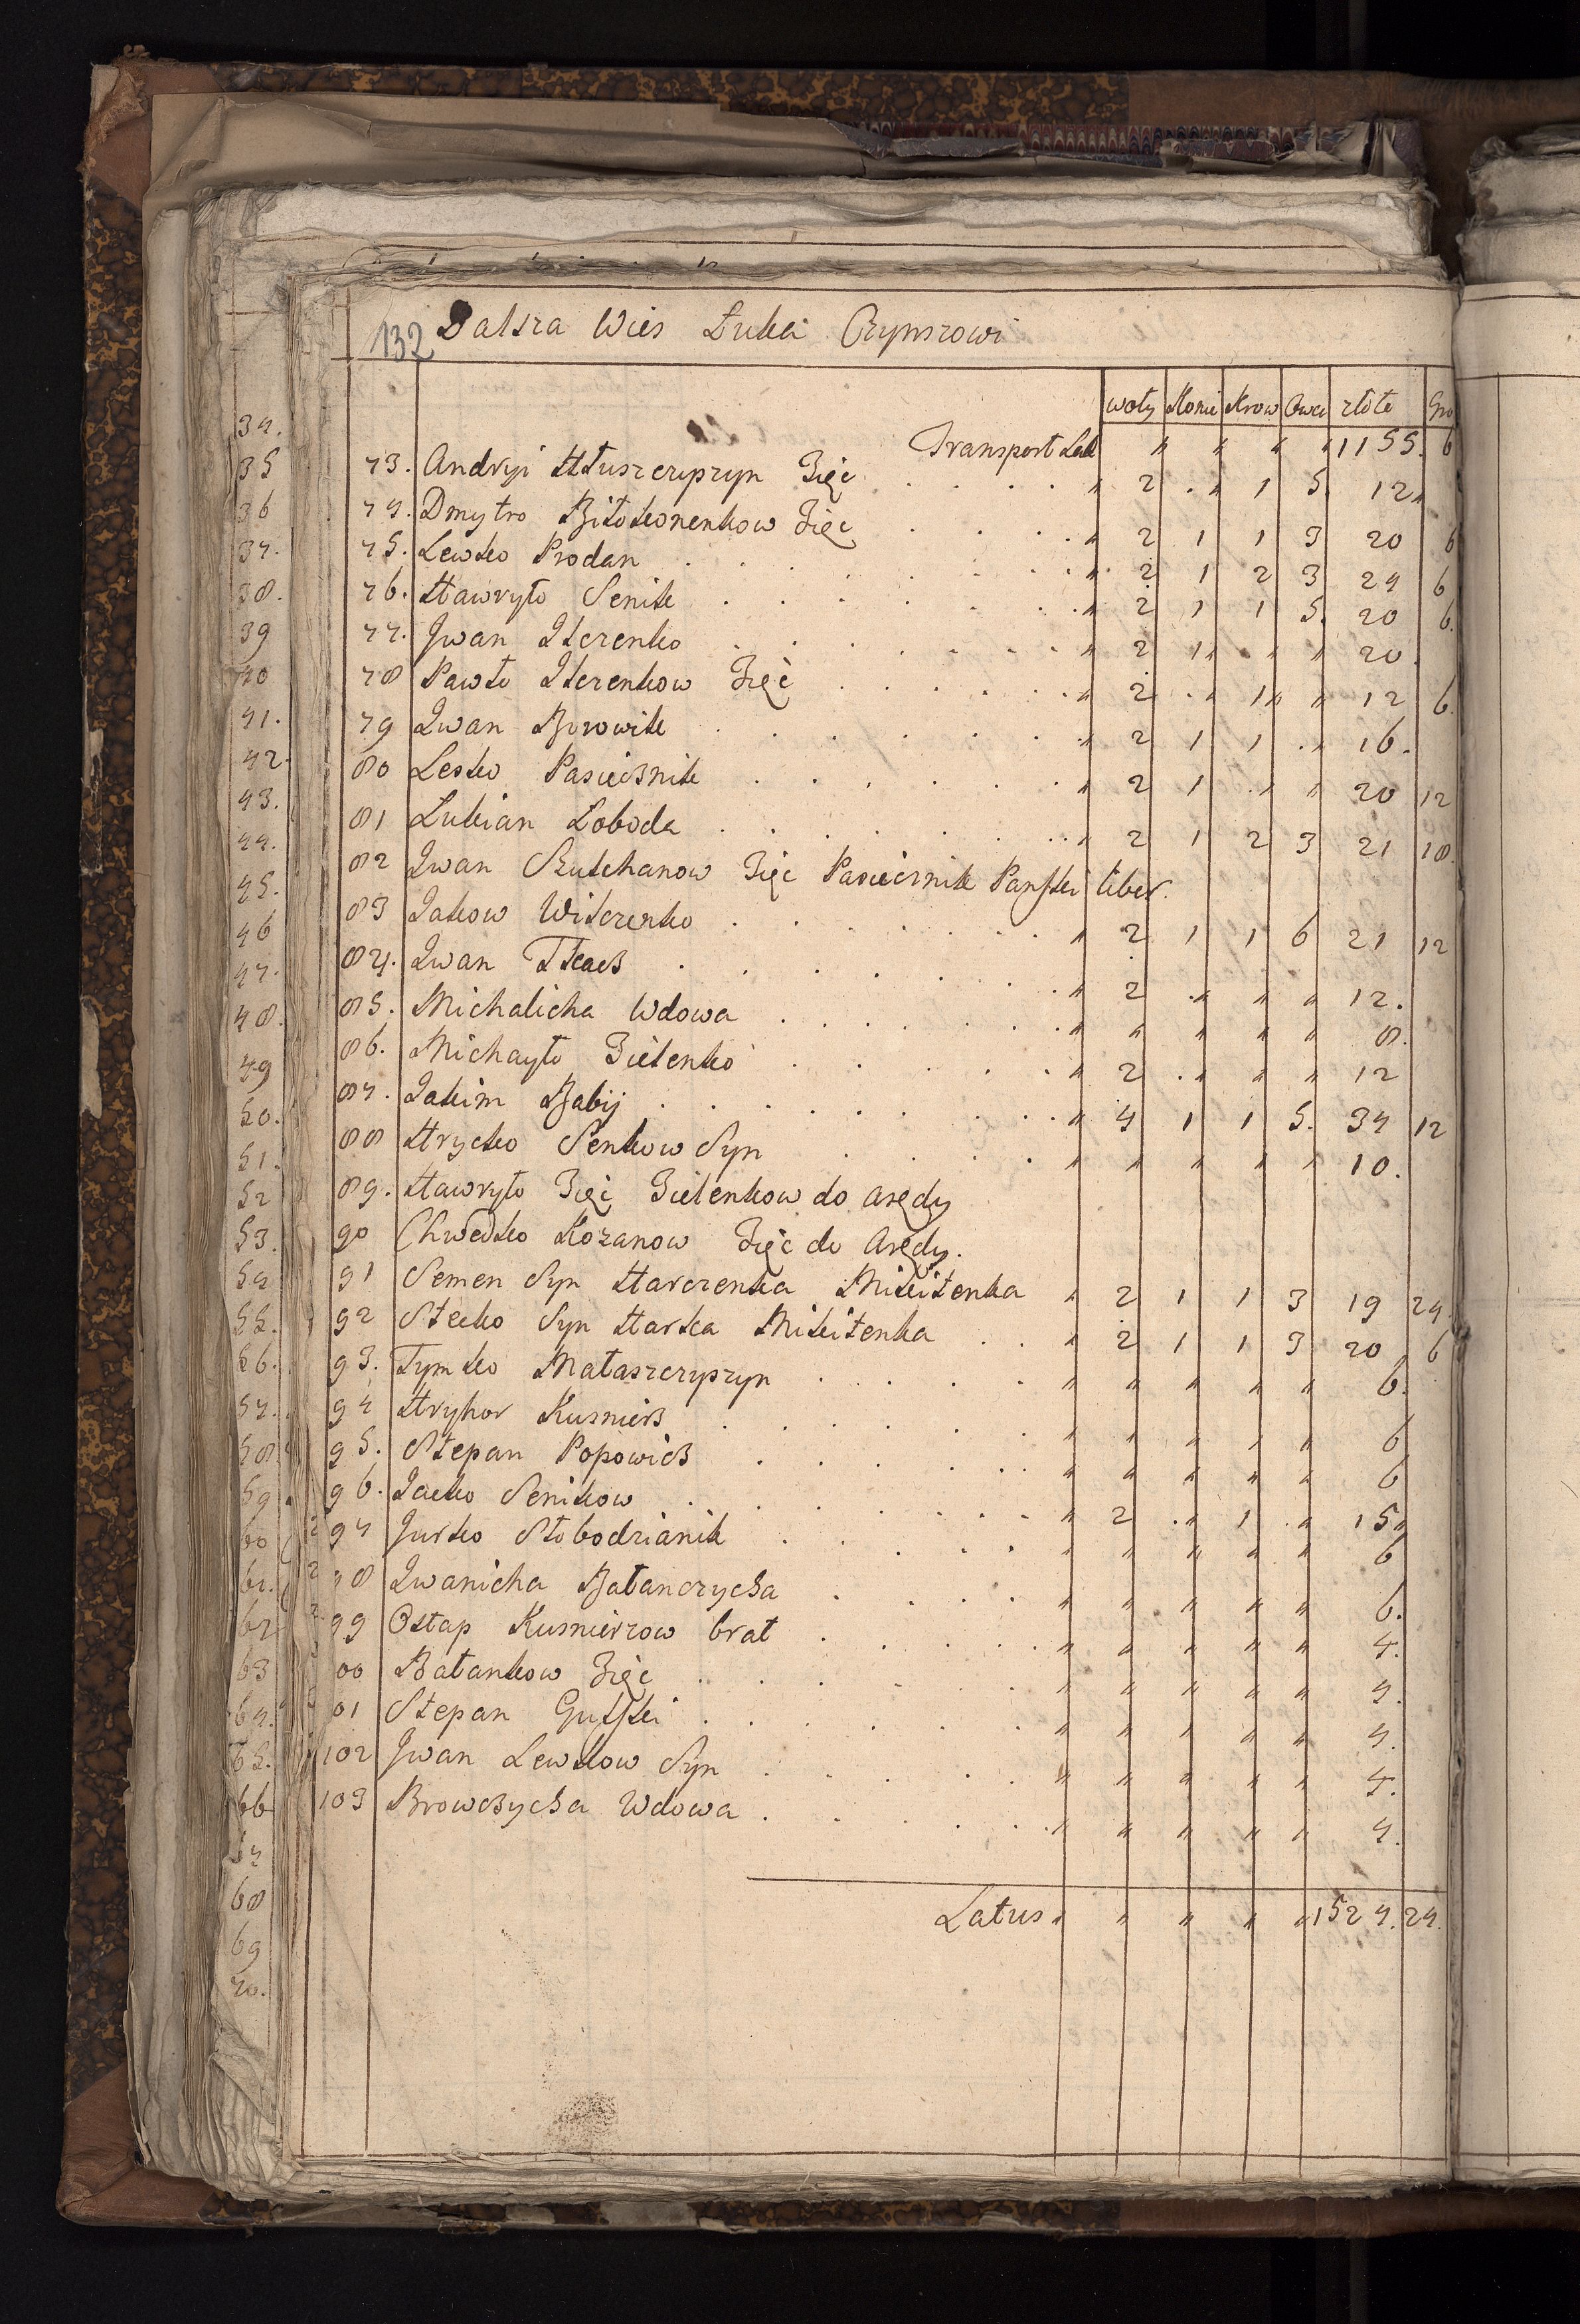 132 Dalsza Wies Łuka Czynszowi
woły Konie Krow Owce złote Gro
Transport Lat " " " " 1155. 6
73. Andryi Hłuszczyszyn Zięć " 2 " 1 5. 12 "
74. Dmytro Biłokonenkow Zięć " 2 1 1 3 20 6
75. Lewko Prodan " 2 1 2 3 24 6
76. Hawryło Senik " 2 1 1 5. 20 6.
77. Jwan Ilczenko " 2 1 " " " 20.
78 Pawło Ilczenkow Zięć " 2 " 1 " " 12 6.
79 Iwan Borowik " 2 1 1 " 16.
80 Lesko Pasiecznik " 2 1 " " 20 12
81 Łukian Łoboda " 2 1 2 3 21 18.
82 Iwan Szulchanow Zięć Pasiecznik Panski liber.
83 Jakow Witczenko " 2 1 1 6 21 12
84. Iwan Tkacz " 2 " " " 12.
85. Michalicha Wdowa " " " " " 8.
86. Michayło Zielenko " 2 " " " 12
87. Jakim Babij " 4 1 1 5. 34 12
88 Hrycko Senkow Syn " " " " " 10.
89. Hawryło Zięć Zielenkow do arędy
90 Chwedko Kozanow Zięć do Arędy.
91 Semen Syn Harczenka Mikitenka " 2 1 1 3 19 24
92 Stecko Syn Harka Mikitenka " 2 1 1 3 20 6
93. Tymko Mataszczyszyn " " " " " 6.
94 Hryhor Kusnierz " " " " " 6
95. Stepan Popowicz " " " " " 6
96. Jacko Senikow " 2 " 1 " 15 "
97 Jurko Słobodzianik " " " " " 6
98 Iwanicha Bałanczycha " " " " " 6.
99 Ostap Kusnierzow brat " " " " " 4.
00 Bałankow Zięć " " " " " 4.
01 Stepan Gutski " " " " " 4.
102 Jwan Lewkow Syn " " " " " 4.
103 Browczycha Wdowa " " " " " 4.
Latus " " " " " 1524. 24.
34.
35
36
37.
38.
39
40
41.
42.
43.
44.
45.
46
47.
48.
49
50.
51.
52
53.
54
55.
56.
57.
58
59
60
61.
62
63
64.
65.
66
67
68
69
70.